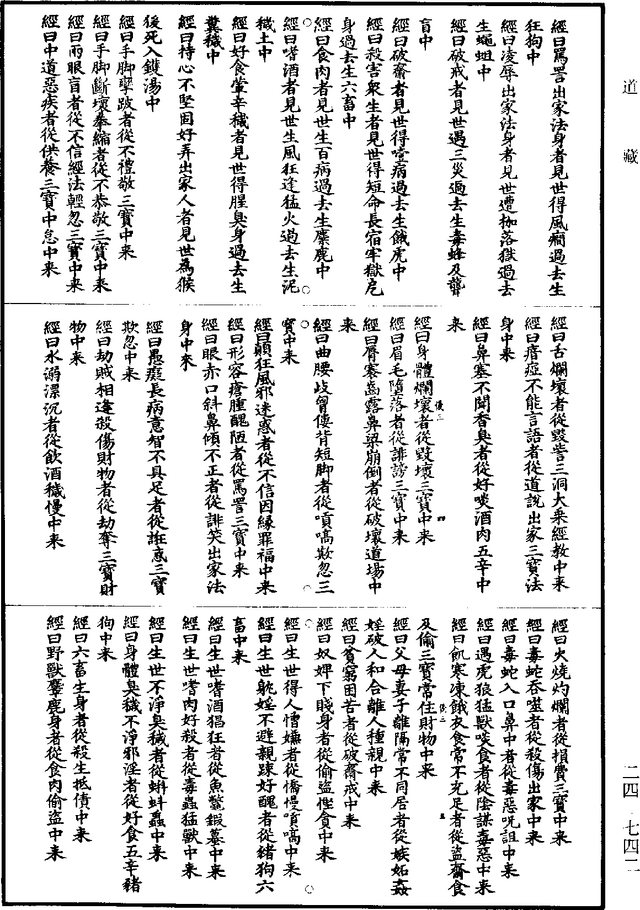 道藏
經曰罵詈出家法身者見世得風癎過去生
狂狗中
經曰凌辱出家法身者見世遭枷落獄過去
生蠅蛆中
經曰破戒者見世遇三災過去生毒蜂及聾
盲中
經曰破齋者見世得噎病過去生餓虎中
經曰殺害衆生者見世得短命長宿牢獄危
身過去生六畜中
經曰食肉者見世生百病過去生麋鹿中
經曰嗜酒者見世生風狂逢猛火過去生泥
穢土中
經曰好食葷辛穢者見世得腥臭身過去生
糞穢中
經曰持心不堅固好弄出家人者見世為猴
後死入鑊湯中
經曰手脚攣跛者從不禮敬三寶中来
經曰手脚斷壞拳縮者從不恭敬三寶中来
經曰兩眼盲者從不信經法輕忽三寶中来
經曰中道惡疾者從供養三寶中怠中来
經曰舌爛壞者從毀訾三洞大乗經教中来
經曰瘖瘂不能言語者從道說出家三寶法
身中来
經曰鼻塞不聞香臭者從好啖酒肉五辛中
来
經曰身體爛壞者從毀壞三寶中来
經曰眉毛墮落者從誹謗三寶中来
經曰脣寋齒露鼻梁崩倒者從破壞道場中
来
經曰曲腰歧曾僂背短脚者從嗔嗃欺忽三
寶中来
經曰顛狂風邪迷惑者從不信因緣罪福中来
經曰形容瘡腫醜陋者從罵詈三寶中来
經曰眼赤口斜鼻傾不正者從誹笑出家法
身中来
經曰愚癡長病意智不具足者從誑惑三寶
欺忽中来
經曰劫賊相逢殺傷財物者從劫奪三寶財
物中来
經曰水溺漂沉者從飲酒穢慢中来
經曰火燒灼爛者從損費三寶中来
經曰毒蛇吞噬者從殺傷出家中来
經曰毒蛇入口鼻中者從毒惡呪詛中来
經曰遇虎狼猛獸啖食者從陰謀毒惡中来
經曰飢寒凍餓衣食常不充足者從盜齋食
及偷三寶常住財物中来
經曰父母妻子離隔常不同居者從嫉妬姦
婬破人和合離人種親中来
經曰貧窮困苦者從破齋戒中来
經曰奴婢下賤身者從偷盜慳貪中来
經曰生世得人憎嫌者從憍慢嗔嗃中来
經曰生世躭婬不避親踈好醜者從猪狗六
畜中来
經曰生世嗜酒猖狂者從魚鱉鍜蟇中来
經曰生世嗜肉好殺者從毒蟲猛獸中来
經曰生世不淨臭穢者從蝌蚪蟲中来
經曰身體臭穢不淨邪淫者從好食五辛豬
狗中来
經曰六畜生身者從殺生抵債中来
經曰野獸麞鹿身者從食肉偷盜中来
二四 七四二